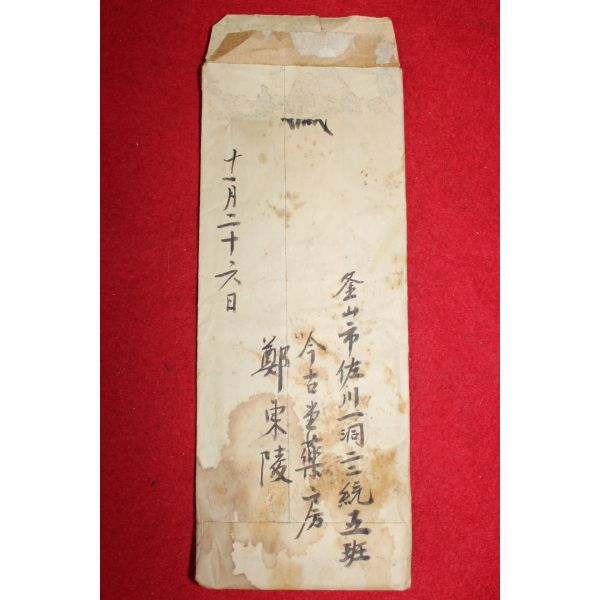 釜山市佐川一洞二二統五班
今古堂藥房
鄭東陵
十一月二十六日